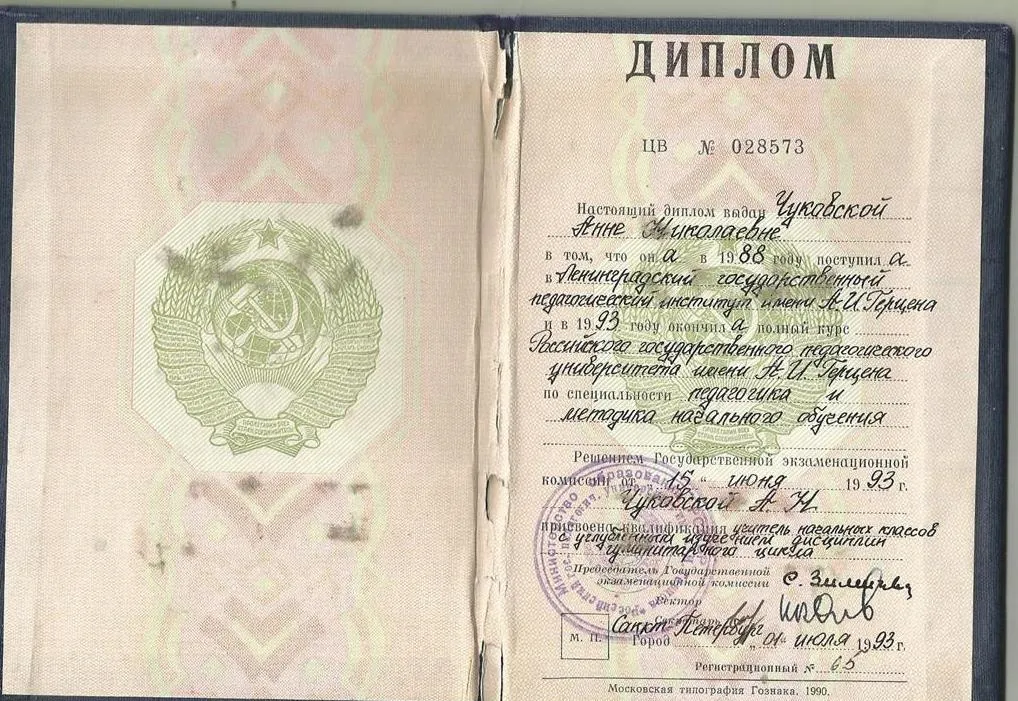 ДИПЛОМ
ЦВ № 028573
Настоящий диплом выдан Чуковской
Анне Николаевне
в том, что она в 1988 году поступила
в Ленинградский государственный
педагогический институт имени А.И. Герцена
и в 1993 году окончила полный курс
Российского государственного педагогического
университета имени А.И. Герцена
по специальности педагогика и
методика начального обучения
Решением Государственной экзаменационной
комиссии от „15“ июня 1993 г.
Чуковской А. Н.
присвоена квалификация учитель начальных классов
с углублённым изучением дисциплин
гуманитарного цикла
Председатель Государственной
экзаменационной комиссии
Ректор
Секретарь
М. П.
Город Санкт-Петербург „01“ июля 1993 г.
Регистрационный № 65
Московская типография Гознака. 1990.